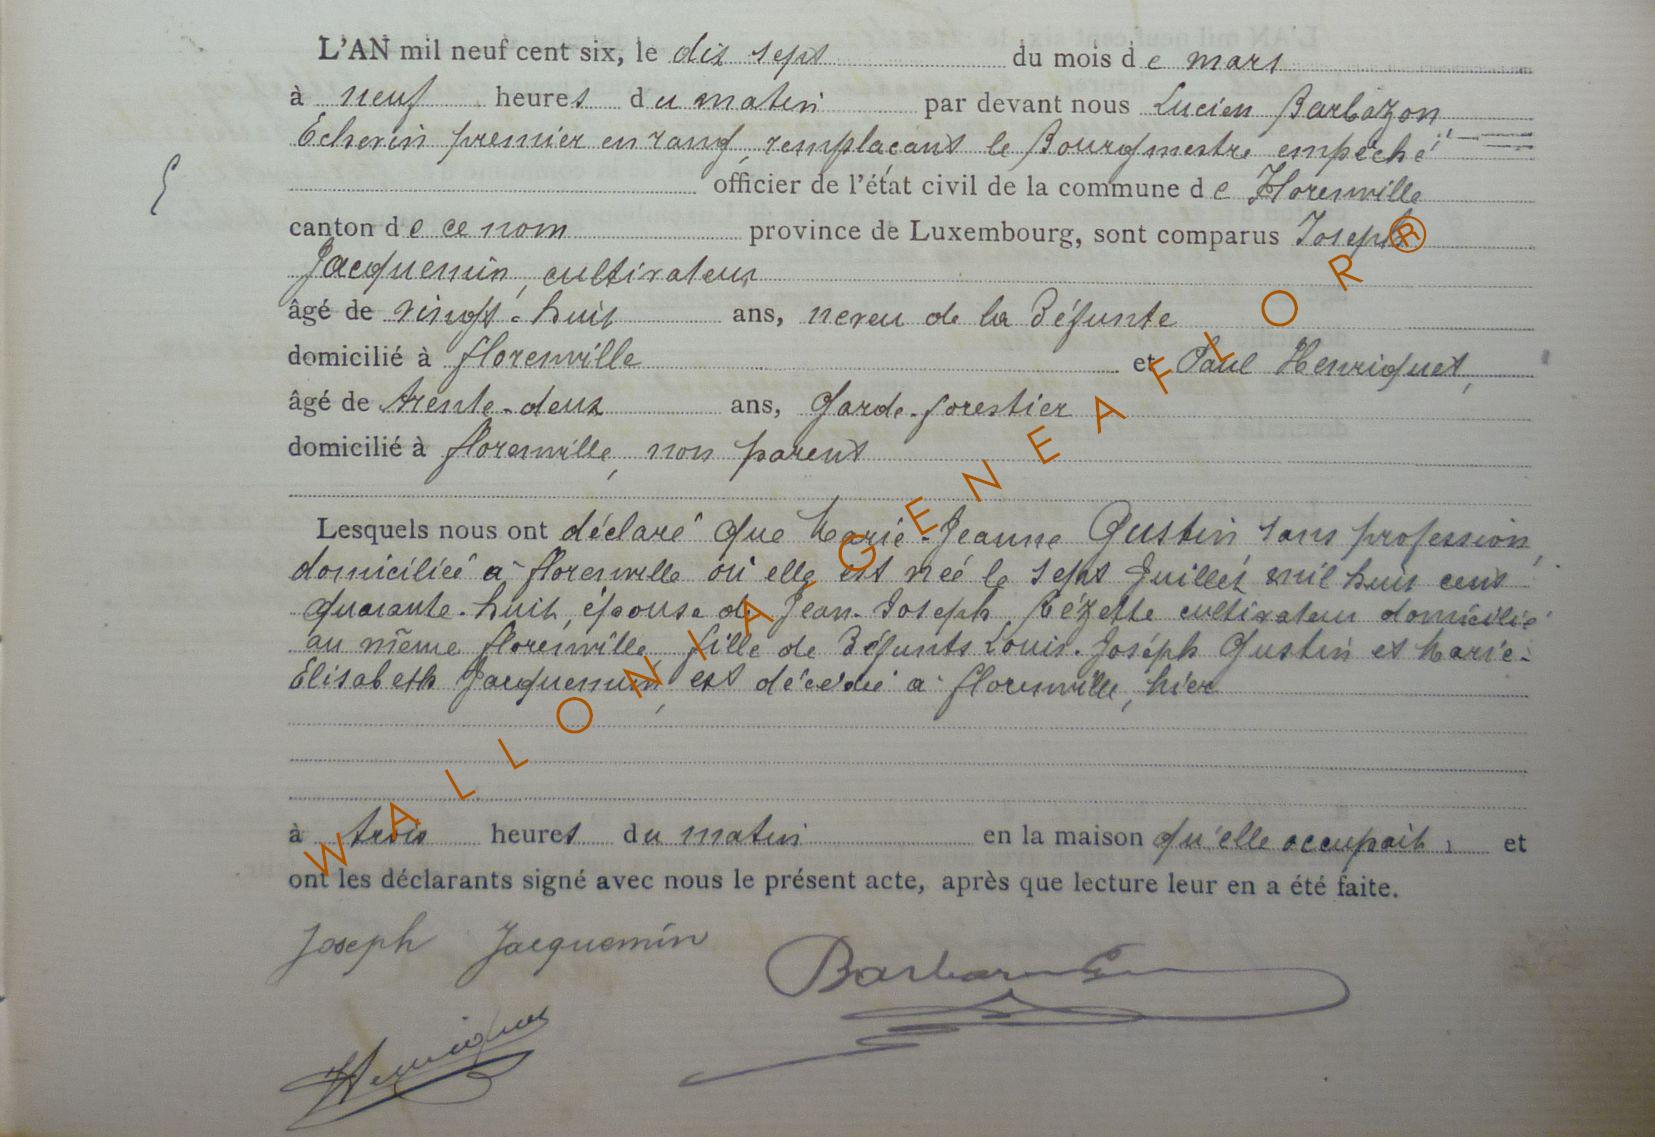 L'AN mil neuf cent six, le dix sept du mois de mars
à neuf heures du matin par devant nous Lucien Barbazon
Echevin premier en rang, remplaçant le Bourgmestre empêché
officier de l'état civil de la commune de Florenville
canton de ce nom province de Luxembourg, sont comparus Joseph
Jacquemin, cultivateur
âgé de vingt-huit ans, neveu de la Défunte
domicilié à florenville et Paul Henriquet,
âgé de trente-deux ans, Garde-forestier
domicilié à florenville, non parent
Lesquels nous ont déclaré que Marie-Jeanne Gustin, sans profession,
domiciliée à florenville où elle est née le sept Juillet mil huit cent
quarante-huit, épouse de Jean-Joseph Rézette cultivateur domicilié
au même florenville fille de Défunts Louis-Joseph Gustin et Marie-
Elisabeth Jacquemin, est décédée à florenville, hier
à trois heures du matin en la maison qu'elle occupait, et
ont les déclarants signé avec nous le présent acte, après que lecture leur en a été faite.
Joseph Jacquemin
Barbazon
Henriquet
WALLONIA-GENEAFLOR®